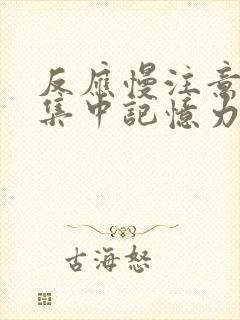 反應慢注意
集中記憶力
古海怒